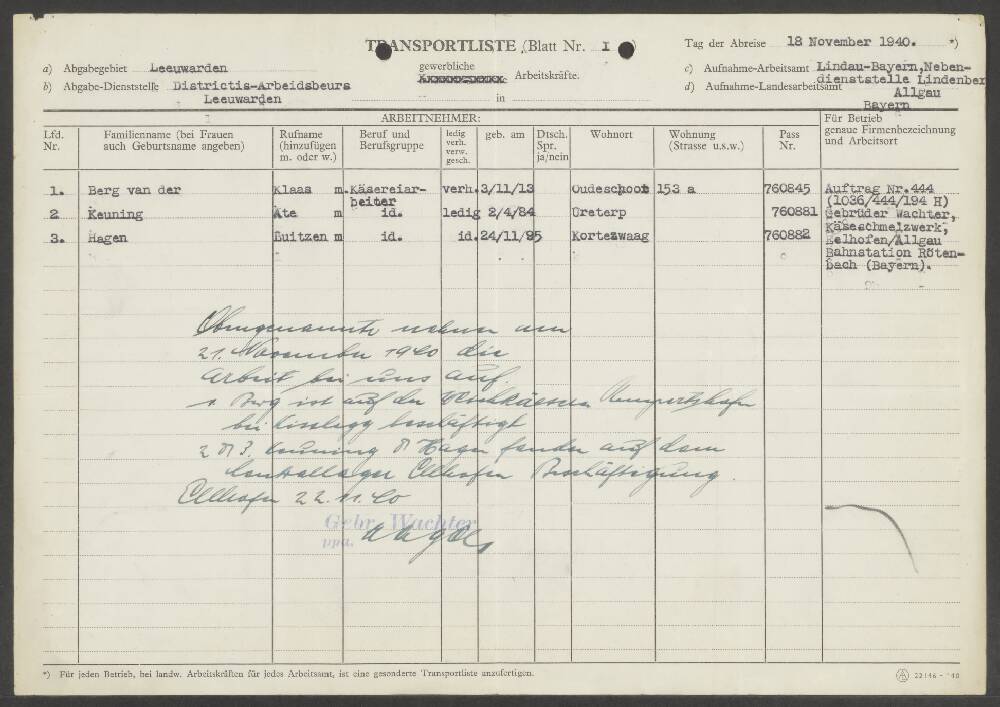 TRANSPORTLISTE (Blatt Nr. I )
Tag der Abreise 18 November 1940. *)
a) Abgabegebiet Leeuwarden
gewerbliche
Arbeitskräfte.
c) Aufnahme-Arbeitsamt Lindau-Bayern, Neben-
dienststelle Lindenber
b) Abgabe-Dienststelle Districtis-Arbeidsbeurs
d) Aufnahme-Landesarbeitsamt Allgau
Leeuwarden
in
Bayern
ARBEITNEHMER:
Lfd. Nr.
Familienname (bei Frauen auch Geburtsname angeben)
Rufname (hinzufügen m. oder w.)
Beruf und Berufsgruppe
ledig verh. verw. gesch.
geb. am
Dtsch. Spr. ja/nein
Wohnort
Wohnung (Strasse u.s.w.)
Pass Nr.
Für Betrieb genaue Firmenbezeichnung und Arbeitsort
1. Berg van der Klaas m. Käsereiar- verh. 3/11/13 Oudeschoot 153 a 760845 Auftrag Nr. 444
beiter (1036/444/194 H)
2 Keuning Ate m id. ledig 2/4/84 Ureterp 760881 Gebrüder Wachter,
Käseschmelzwerk,
3. Hagen Luitzen m id. id. 24/11/95 Kortezwaag 760882 Selhofen/Allgau
Bahnstation Röten-
bach (Bayern).
Obengenannte nahmen am
21. November 1940 die
Arbeit bei uns auf.
1. Berg ist auf der
bei Kisslegg beschäftigt
2 & 3. Keuning & Hagen fanden auf dem
Centrallager Ellhofen Beschäftigung.
Ellhofen 22.11.40
Gebr. Wachter
ppa.
*) Für jeden Betrieb, bei landw. Arbeitskräften für jedes Arbeitsamt, ist eine gesonderte Transportliste anzufertigen.
22146 - '40